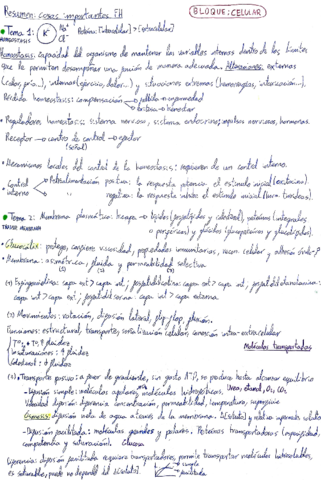 Resumen: cosas importantes FH
BLOQUE: CELULAR
Tema 1: K⁺ Na⁺ Cl⁻ Proteínas [intracelular] > [extracelular]
HOMEOSTASIS
Homeostasis: capacidad del organismo de mantener las variables internas dentro de los límites
que le permitan desempeñar una función de manera adecuada. Alteraciones: externas
(calor, frío...), internas (ejercicio, dolor...) y situaciones extremas (hemorragias, intoxicación...).
Pérdida homeostasis: compensación → fallida → enfermedad
→ exitosa → bienestar
Reguladores homeostasis: sistema nervioso, sistema endocrino; impulsos nerviosos, hormonas.
Receptor → centro de control → efector
(señal)
Mecanismos locales del control de la homeostasis: requieren de un control interno.
Control interno
Retroalimentación positiva: la respuesta potencia el estímulo inicial (oxitocina).
negativa: la respuesta inhibe el estímulo inicial
Tema 2: Membrana plasmática: bicapa → lípidos (fosfolípidos y colesterol), proteínas (integrales
o periféricas) y glúcidos (glucoproteínas y glucolípidos).
Glucocálix: protege, confiere viscosidad, propiedades inmunitarias, recon. celular y
Membrana: asimétrica, fluida y permeabilidad selectiva.
(1) (2) (3)
(1) Esfingomielina: capa ext > capa int; fosfatidilcolina: capa ext > capa int; fosfatidiletanolamina:
capa int > capa ext; fosfatidilserina: capa int > capa externa.
(2) Movimientos: rotación, difusión lateral, flip-flop, flexión.
Funciones: estructural, transporte, señalización celular, conexión intra-extracelular
↑ Tª, ↑ fluidez
Insaturaciones: ↑ fluidez
Colesterol: ↓ fluidez
Moléculas transportadas
(3) Transporte pasivo: a favor de gradiente, sin gasto ATP, se produce hasta alcanzar equilibrio
- Difusión simple: moléculas apolares, moléculas hidrofóbicas. Urea, etanol, O₂, CO₂
Velocidad difusión: diferencia concentración, permeabilidad, temperatura, superficie
Ósmosis: difusión neta de agua a través de la membrana.
- Difusión facilitada: moléculas grandes y polares. Proteínas transportadoras (especificidad,
competencia y saturación). Glucosa
Diferencia: difusión facilitada requiere transportadores, permite transportar moléculas hidrosolubles,
es saturable,
simple
facilitada